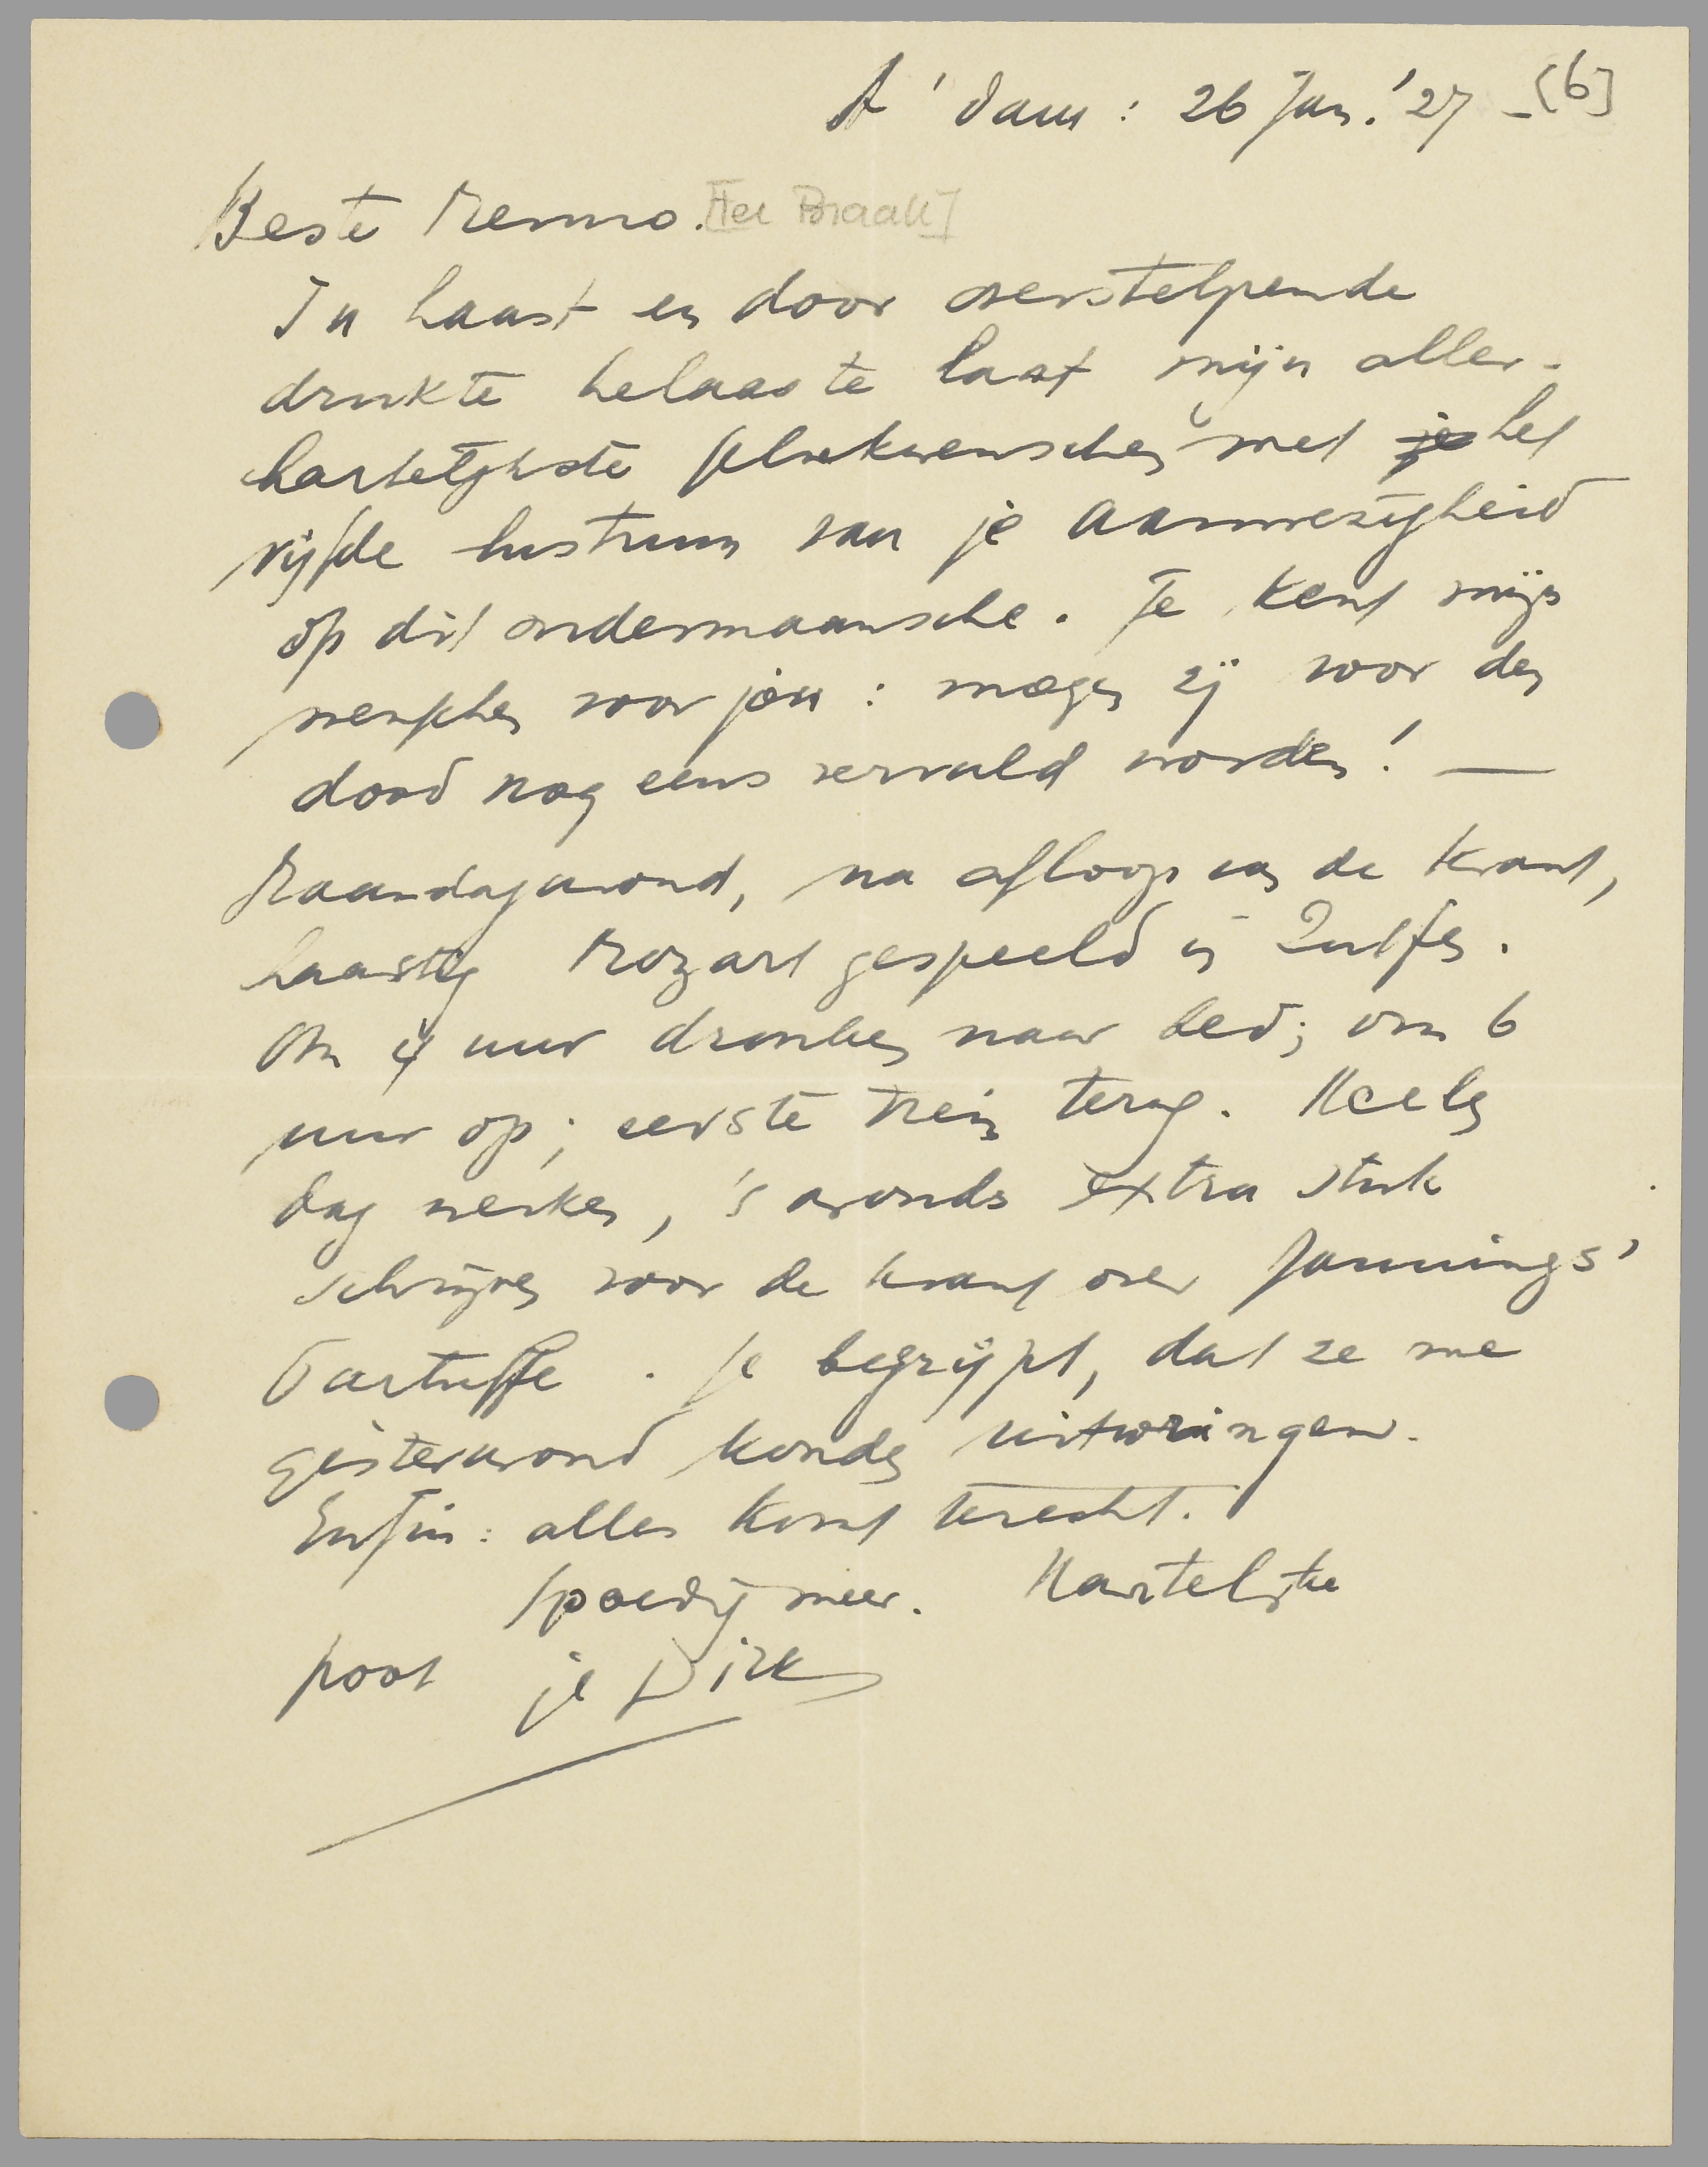 A'dam: 26 Jan. '27 - [6]
Beste Menno. [Ter Braak]
In haast en door overstelpende
drukte helaas te laat mijn aller-
hartelijkste gelukwenschen met je het
vijfde lustrum van je aanwezigheid
op dit ondermaansche. Je kent mijn
wenschen voor jou: mogen zij voor den
dood nog eens vervuld worden! —
Maandagavond, na afloop van de krant,
haastig Mozart gespeeld in Zutfen.
Om 4 uur dronken naar bed; om 6
uur op; eerste trein terug. Heelen
dag werken, 's avonds extra stuk
schrijven voor de krant over Jannings'
Tartuffe. Je begrijpt, dat ze me
gisteravond konden uitwringen.
Enfin: alles komt terecht.
Spoedig meer. Hartelijke
poot je Dirk